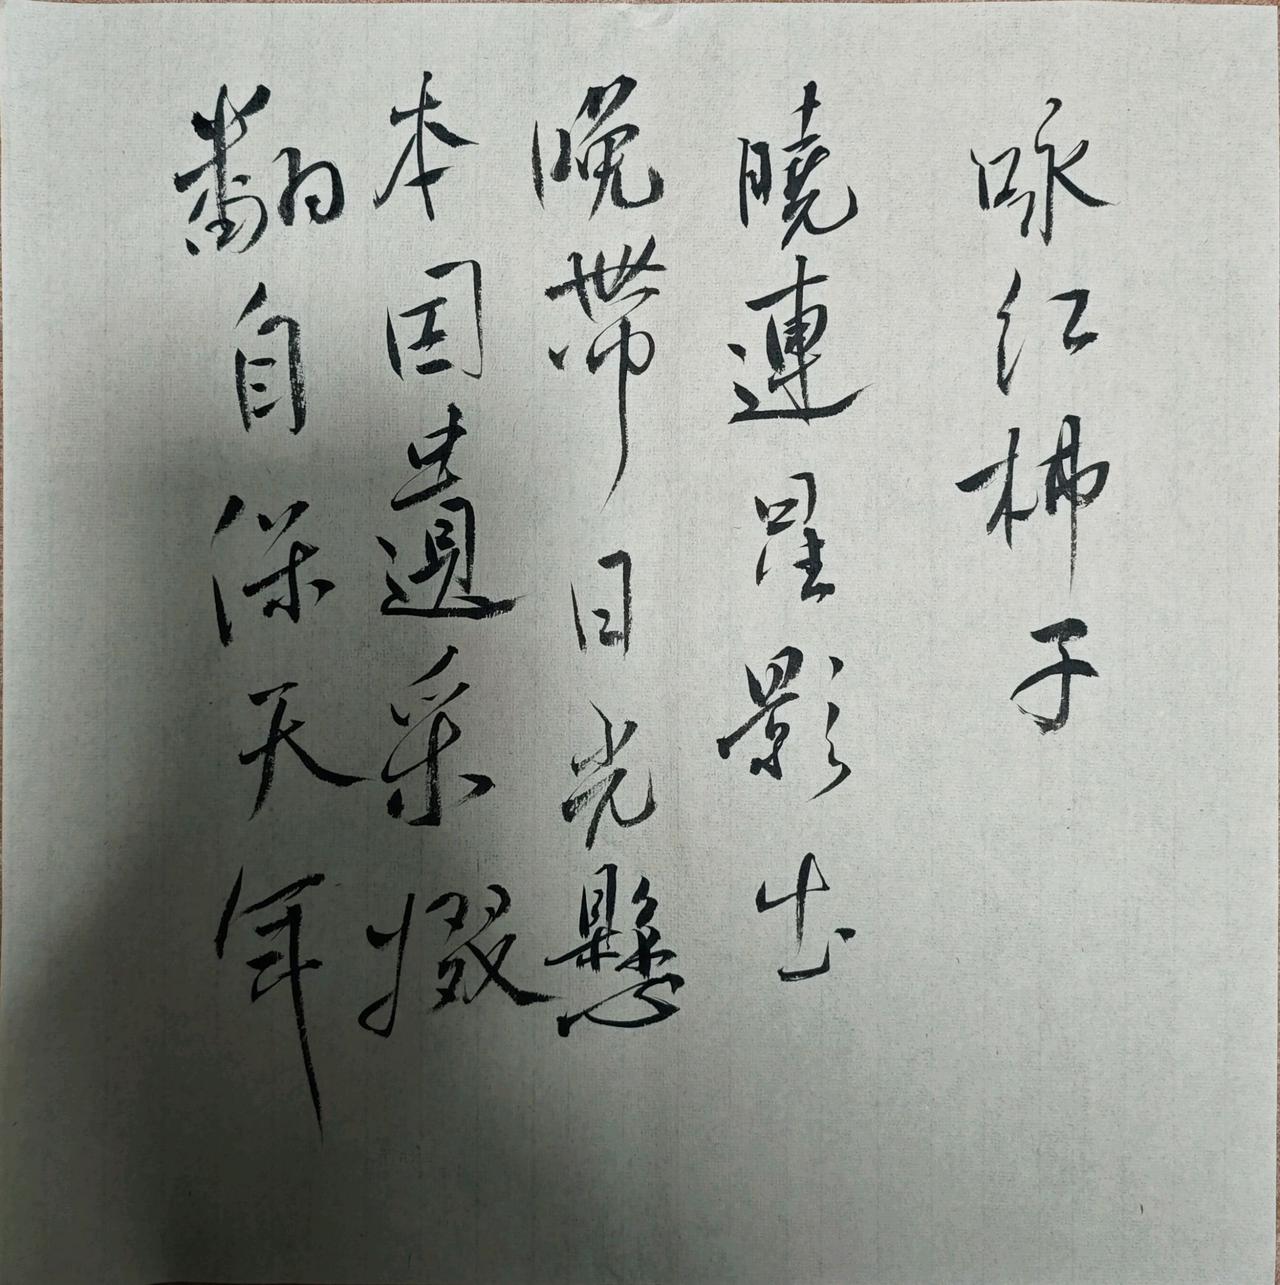 咏红柿子
曉連星影出
晚帶日光懸
本因遺采掇
翻自保天年